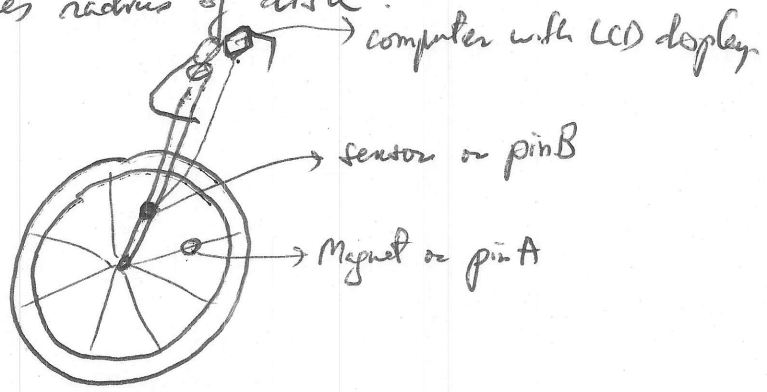 radius of disk.
computer with LCD display
sensor or pin B
Magnet or pin A